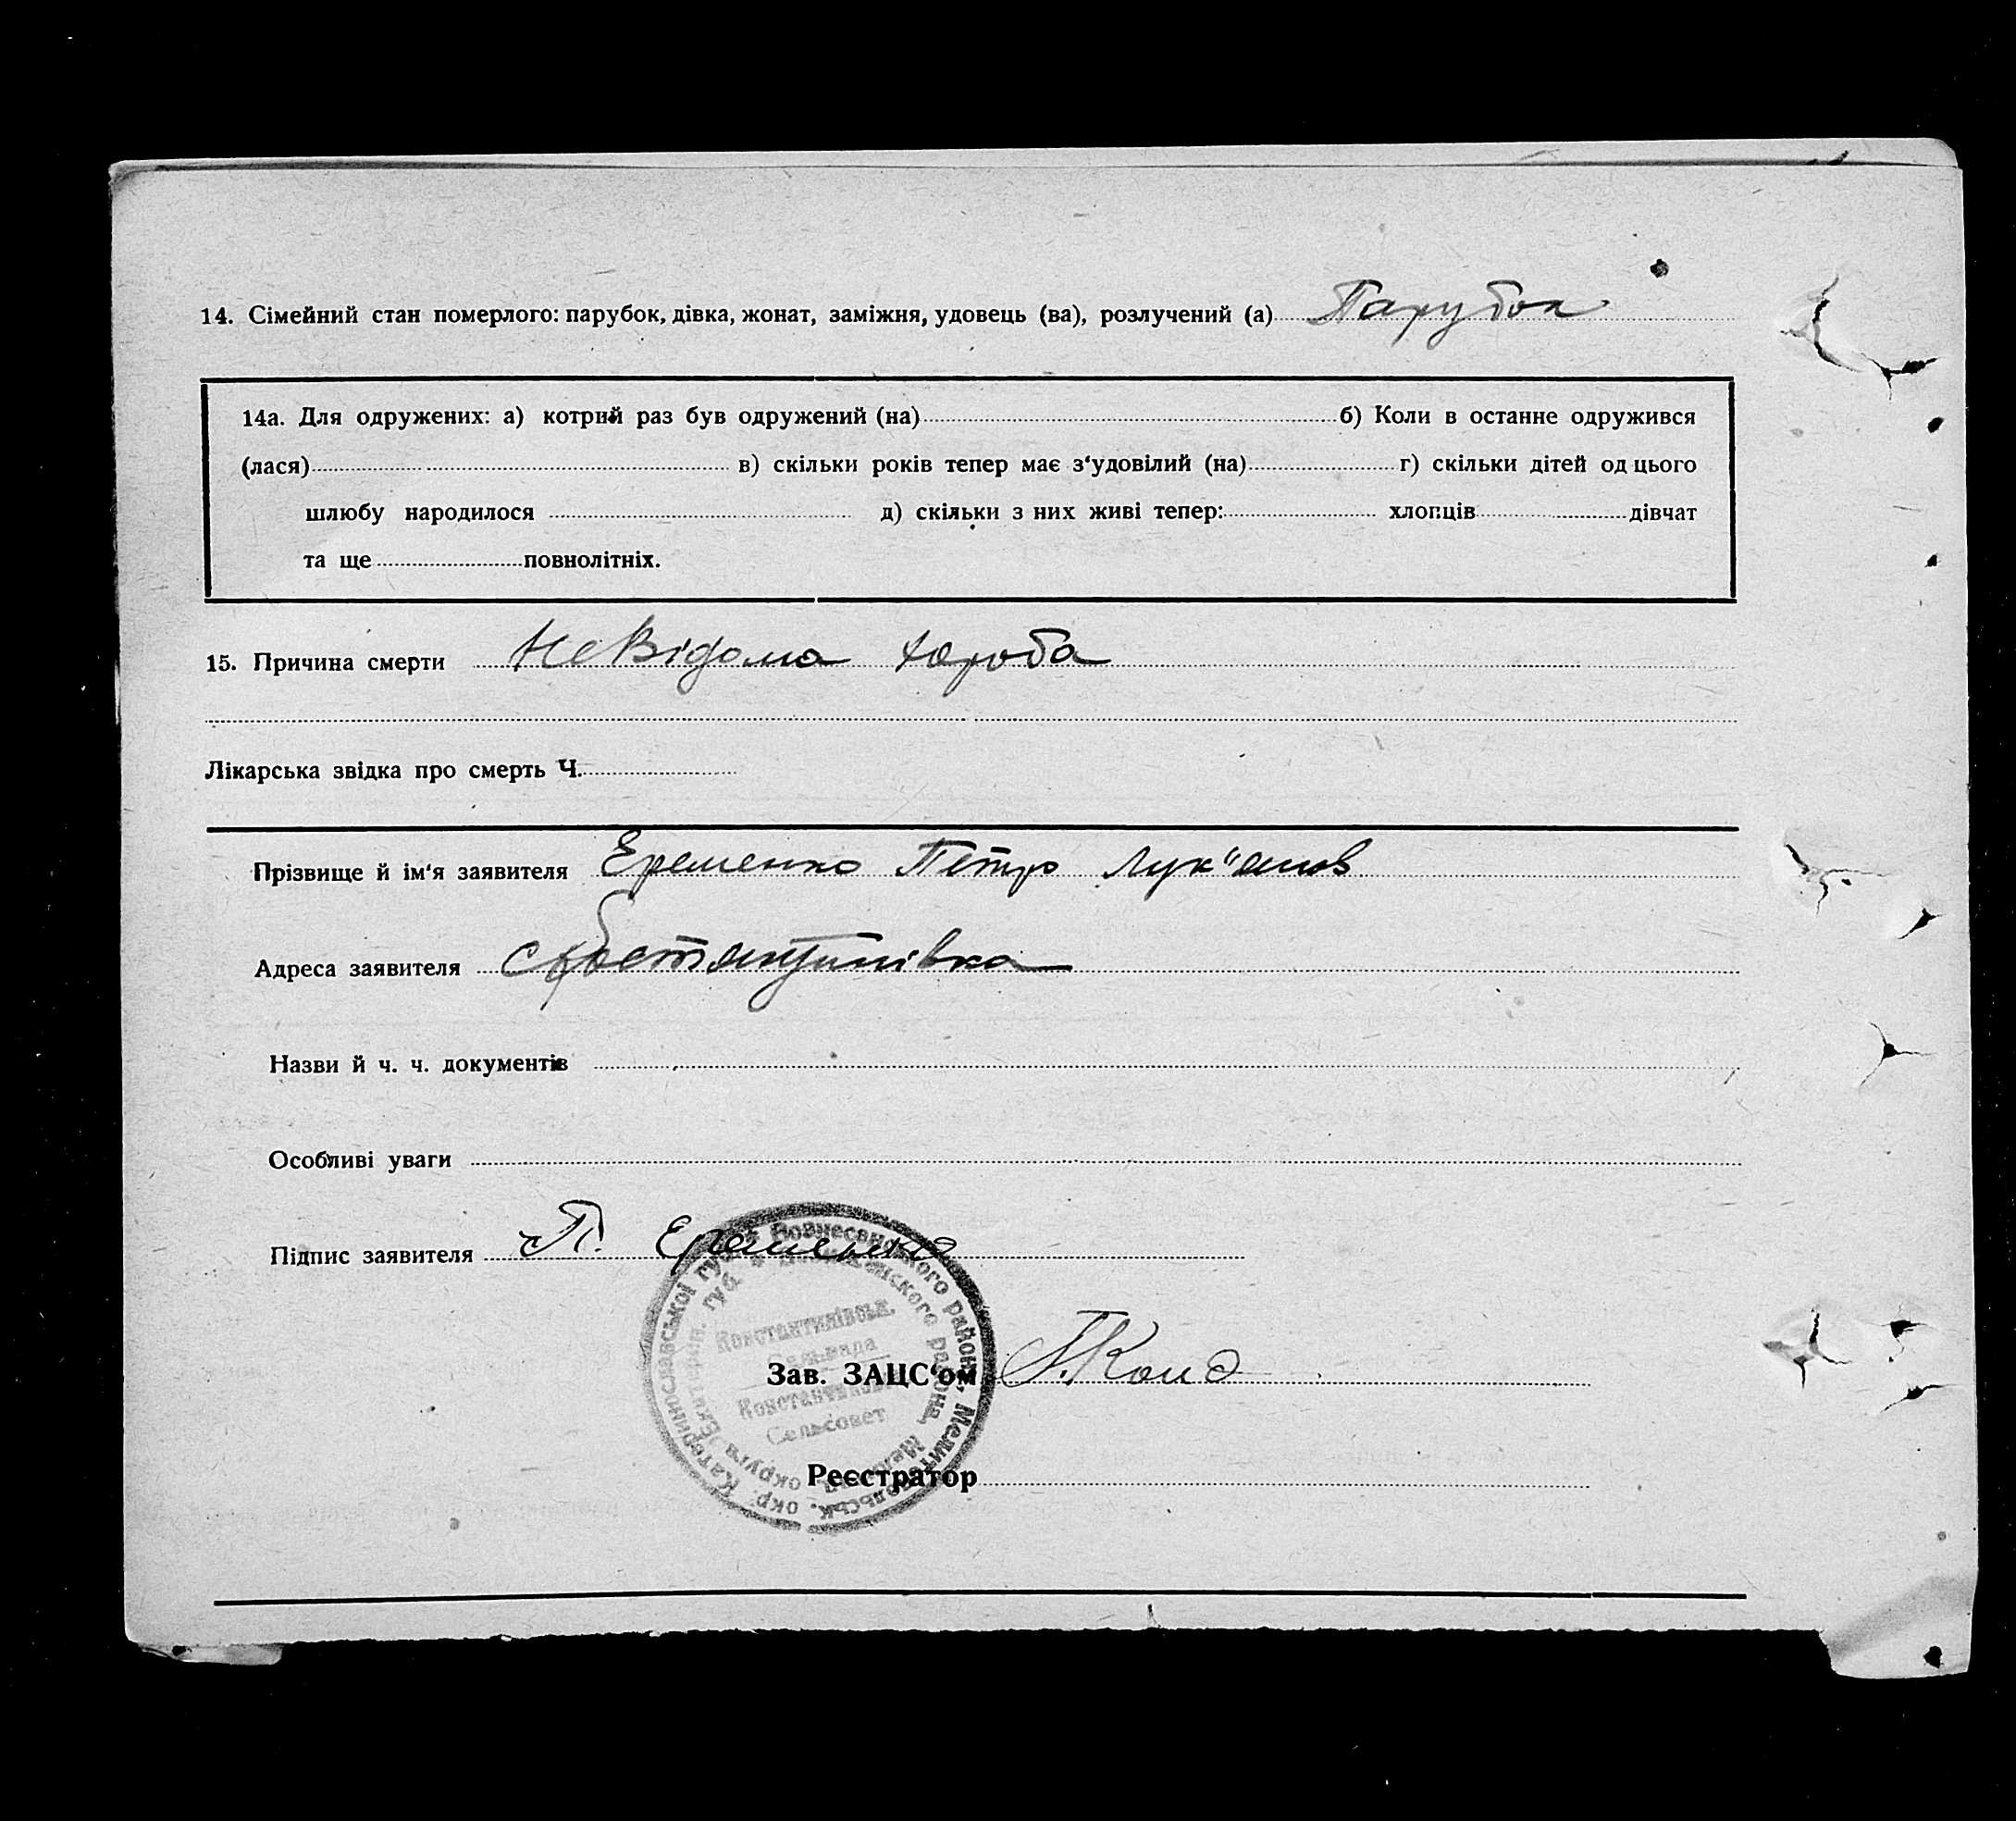 14. Сімейний стан померлого: парубок, дівка, жонат, заміжня, удовець (ва), розлучений (а) Парубок
14а. Для одружених: а) котрий раз був одружений (на) б) Коли в останне одружився
(лася) в) скільки років тепер має з‘удовілий (на) г) скільки дітей од цього
шлюбу народилося д) скільки з них живі тепер: хлопців дівчат
та ще повнолітніх.
15. Причина смерти Невідома хороба
Лікарська звідка про смерть Ч.
Прізвище й ім‘я заявителя Еременко Петро Лук"янов
Адреса заявителя
Назви й ч. ч. документів
Особливі уваги
Підпис заявителя П. Еременко
Катеринославської губ. Вознесенського району, Мелітопольськ. окр.
Константинівськ.
Сельрада
Константиновск.
Сельсовет
Зав. ЗАЦС‘ом
Реєстратор